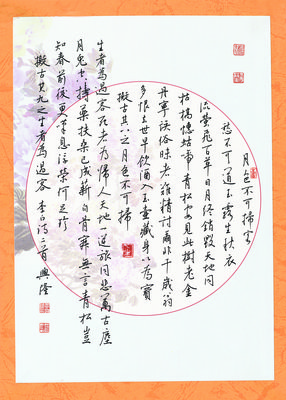 月色不可掃客
愁不可道玉露生秋衣
流螢飛百草日月終銷毀天地同
枯槁蟪蛄啼青松安見此樹老金
丹寧誤俗昧者難精討爾非千歲翁
多恨去世早飲酒入玉壺藏身以為寶
擬古其八之月色不可掃
生者為過客死者為歸人天地一逆旅同悲萬古塵
月兔空搗藥扶桑已成薪白骨寂無言青松豈
知春前後更嘆息浮榮何足珍
擬古其九之生者為過客 李白詩二首興隆